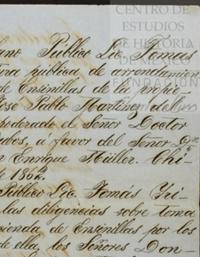 CENTRO DE
ESTUDIOS
DE HISTORIA
DE MÉXICO
FUNDACIÓN
ano Público Lic. Tomás
tura pública de arrendamien
de Encinillas de la propie
José Pablo Martínez del
poderado el Señor Doctor
a favor del Señor Dn
Enrique Müller. Chi
de 186
Público Lic. Tomás Yri
las diligencias sobre toma
ienda de Encinillas por los
de ella, los Señores Don